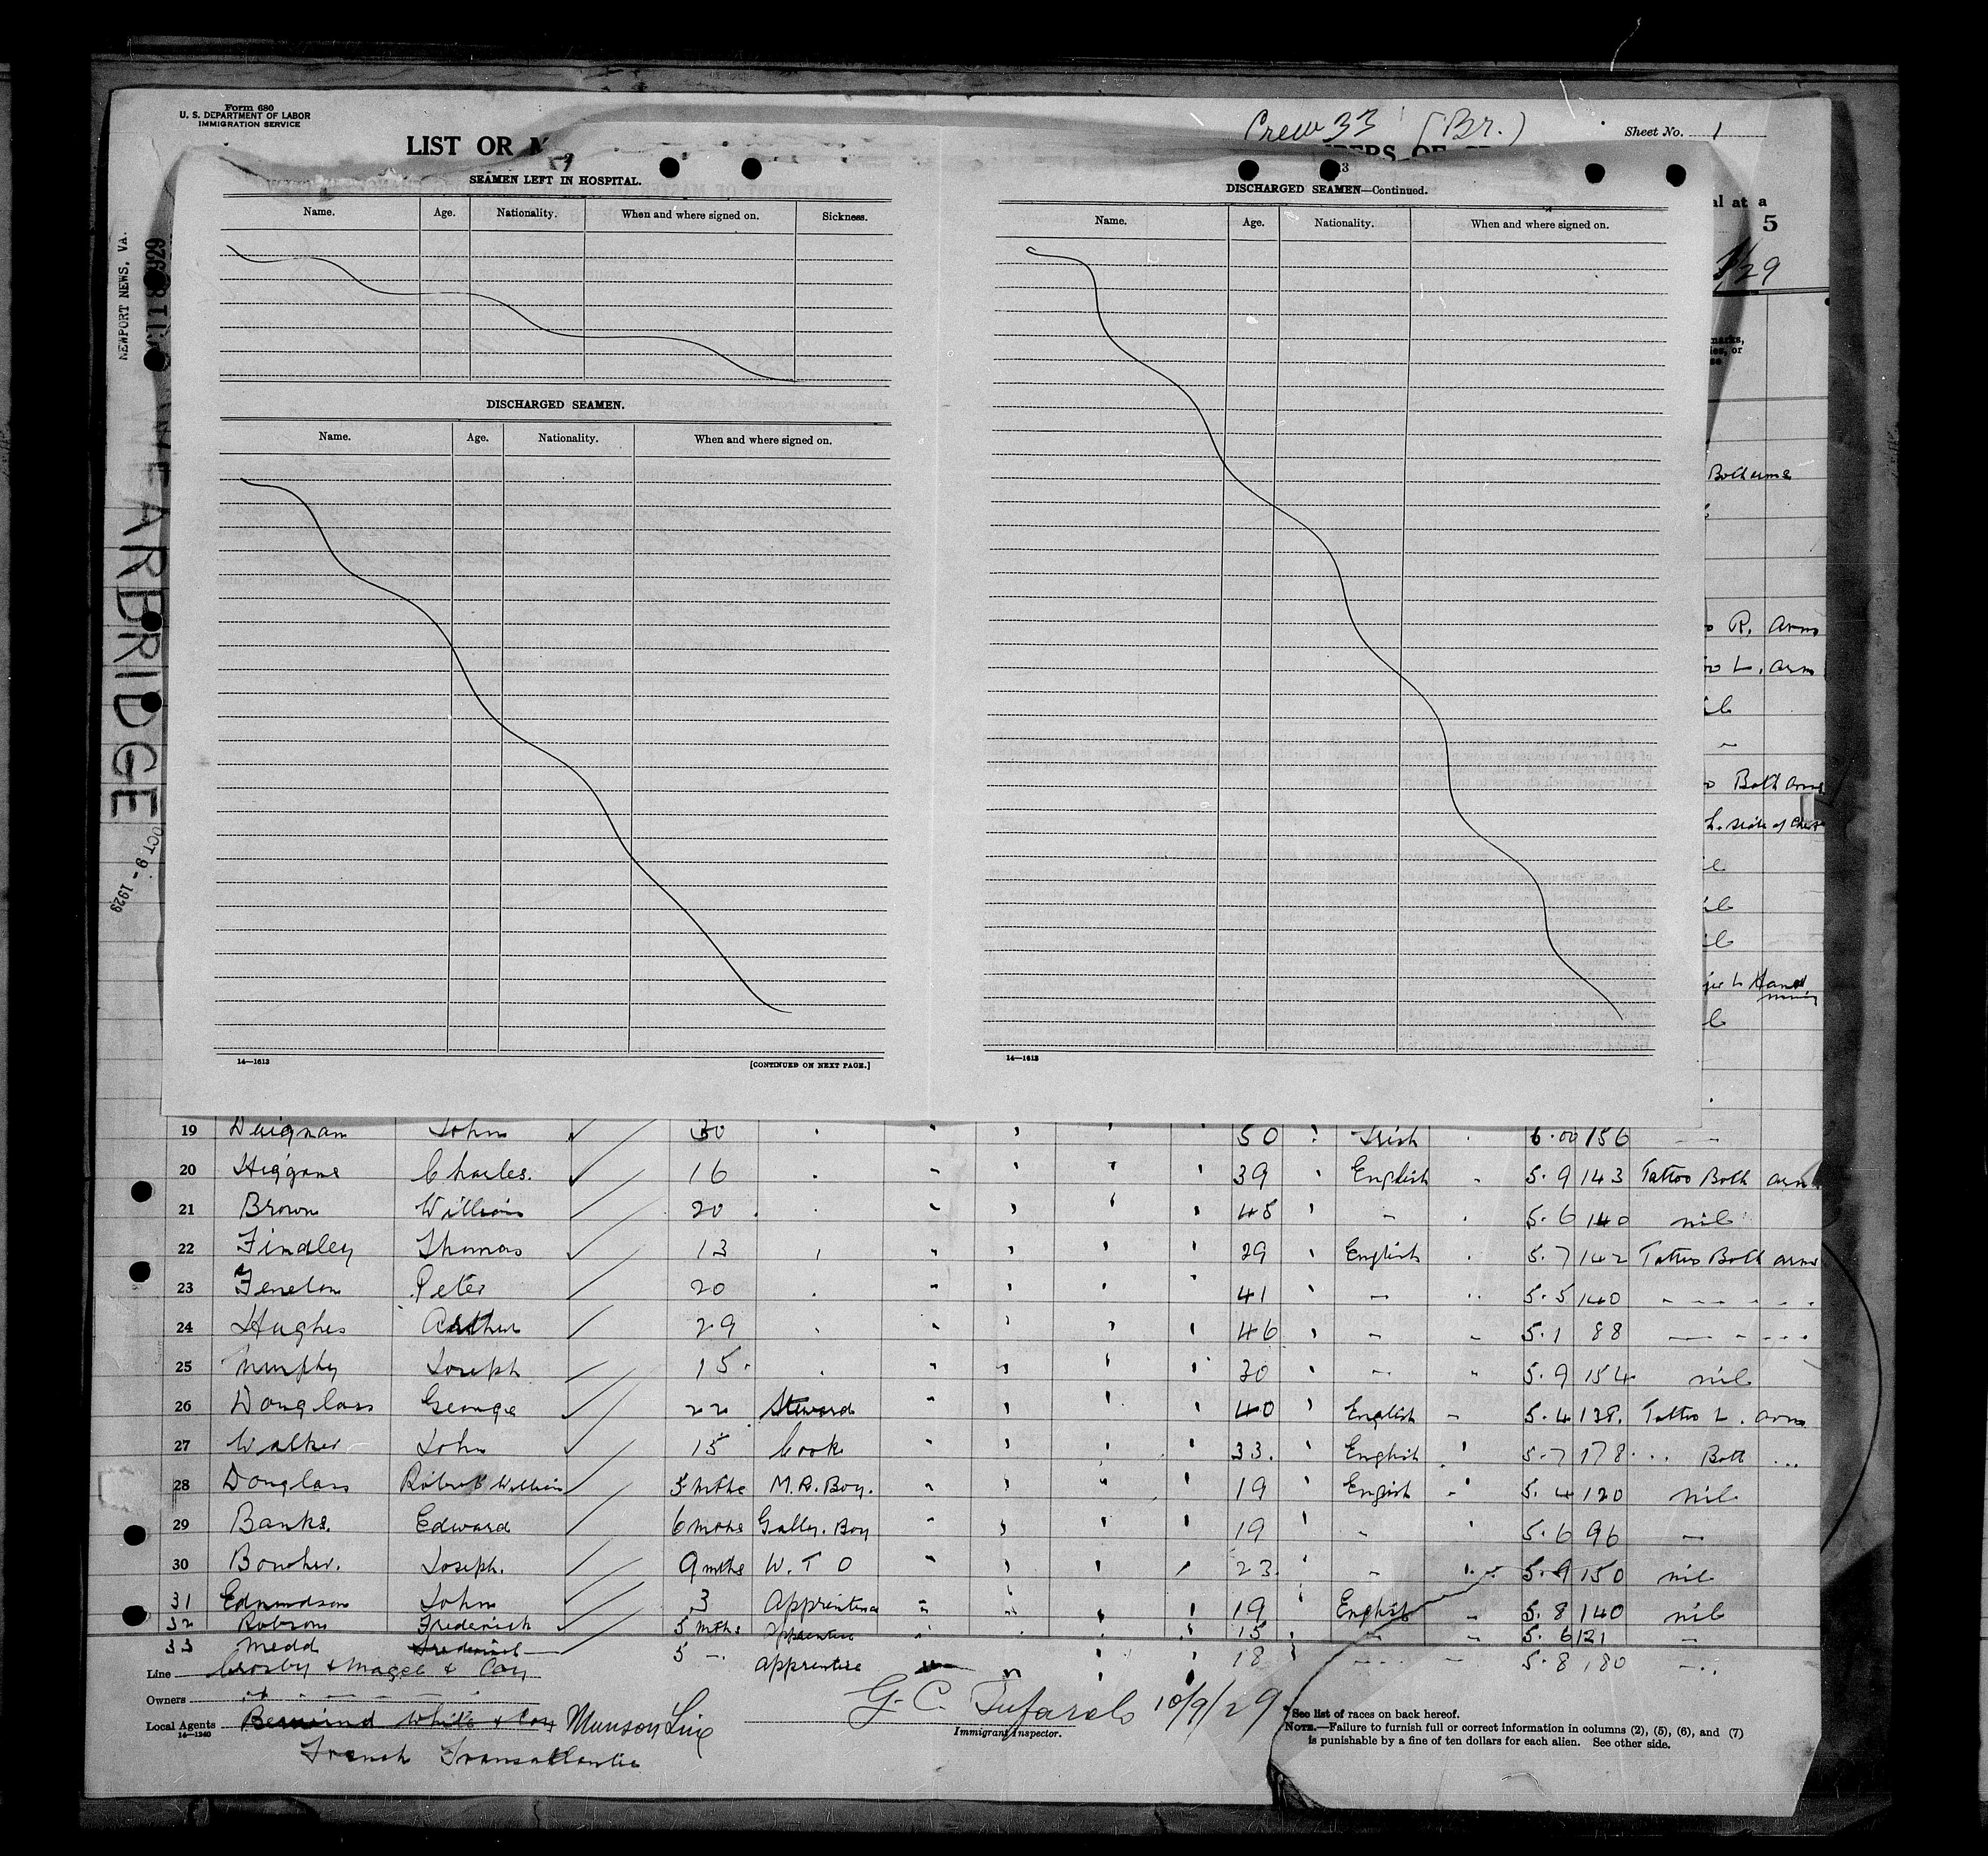 Form 680
U. S. DEPARTMENT OF LABOR
IMMIGRATION SERVICE
LIST OR
Crew 33 (Br.)
Sheet No. 1
al at a
5
29
NEWPORT NEWS, VA.
ARBRIDGE
OCT 9 - 1929
SEAMEN LEFT IN HOSPITAL.
Name. Age. Nationality. When and where signed on. Sickness.
DISCHARGED SEAMEN.
Name. Age. Nationality. When and where signed on.
14—1613
[CONTINUED ON NEXT PAGE.]
3
DISCHARGED SEAMEN—Continued.
Name. Age. Nationality. When and where signed on.
14—1613
marks,
or
Both arms
R. Arm
L. arm
Both arms
L. side of Chest
L Hand
19 Duignam John 30 50 Irish 6.00 156
20 Higgins Charles. 16 39 English 5.9 143 Tattoo Both arm
21 Brown William 20 45 " 5.6 140 nil
22 Findley Thomas 13 29 English 5.7 142 Tattoo Both arms
23 Fenelon Peter 20 41 " 5.5 140 " " " "
24 Hughes Arthur 29 46 " 5.1 88 " " " "
25 Murphy Joseph 15 30 " 5.9 154 nil
26 Douglass George 22 Steward 40 English " 5.4 138. Tattoo L. arm
27 Walker John 15 Cook 33. English " 5.7 178 " Both "
28 Douglass Robert William 5 mths M.R. Boy. 19 English " 5.4 120 nil
29 Banks. Edward 6 mths Gally. Boy 19 " 5.6 96 "
30 Boucher. Joseph. 9 mths W. T O 23 " 5.9 150 nil
31 Edmundson John 3 Apprentice 19 English " 5.8 140 nil
32 Robson Frederick 5 mths apprentice 15 " " 5.6 121 "
33 Medd Frederick 5 " apprentice 18 " " 5.8 180 "
Line Crosby & Magee & Coy
Owners
Local Agents Berwind White & Coy Munson Line
14—1240
French Transatlantic
G. C. Tufarolo 10/9/29
Immigrant Inspector.
*See list of races on back hereof.
NOTE.—Failure to furnish full or correct information in columns (2), (5), (6), and (7)
is punishable by a fine of ten dollars for each alien. See other side.